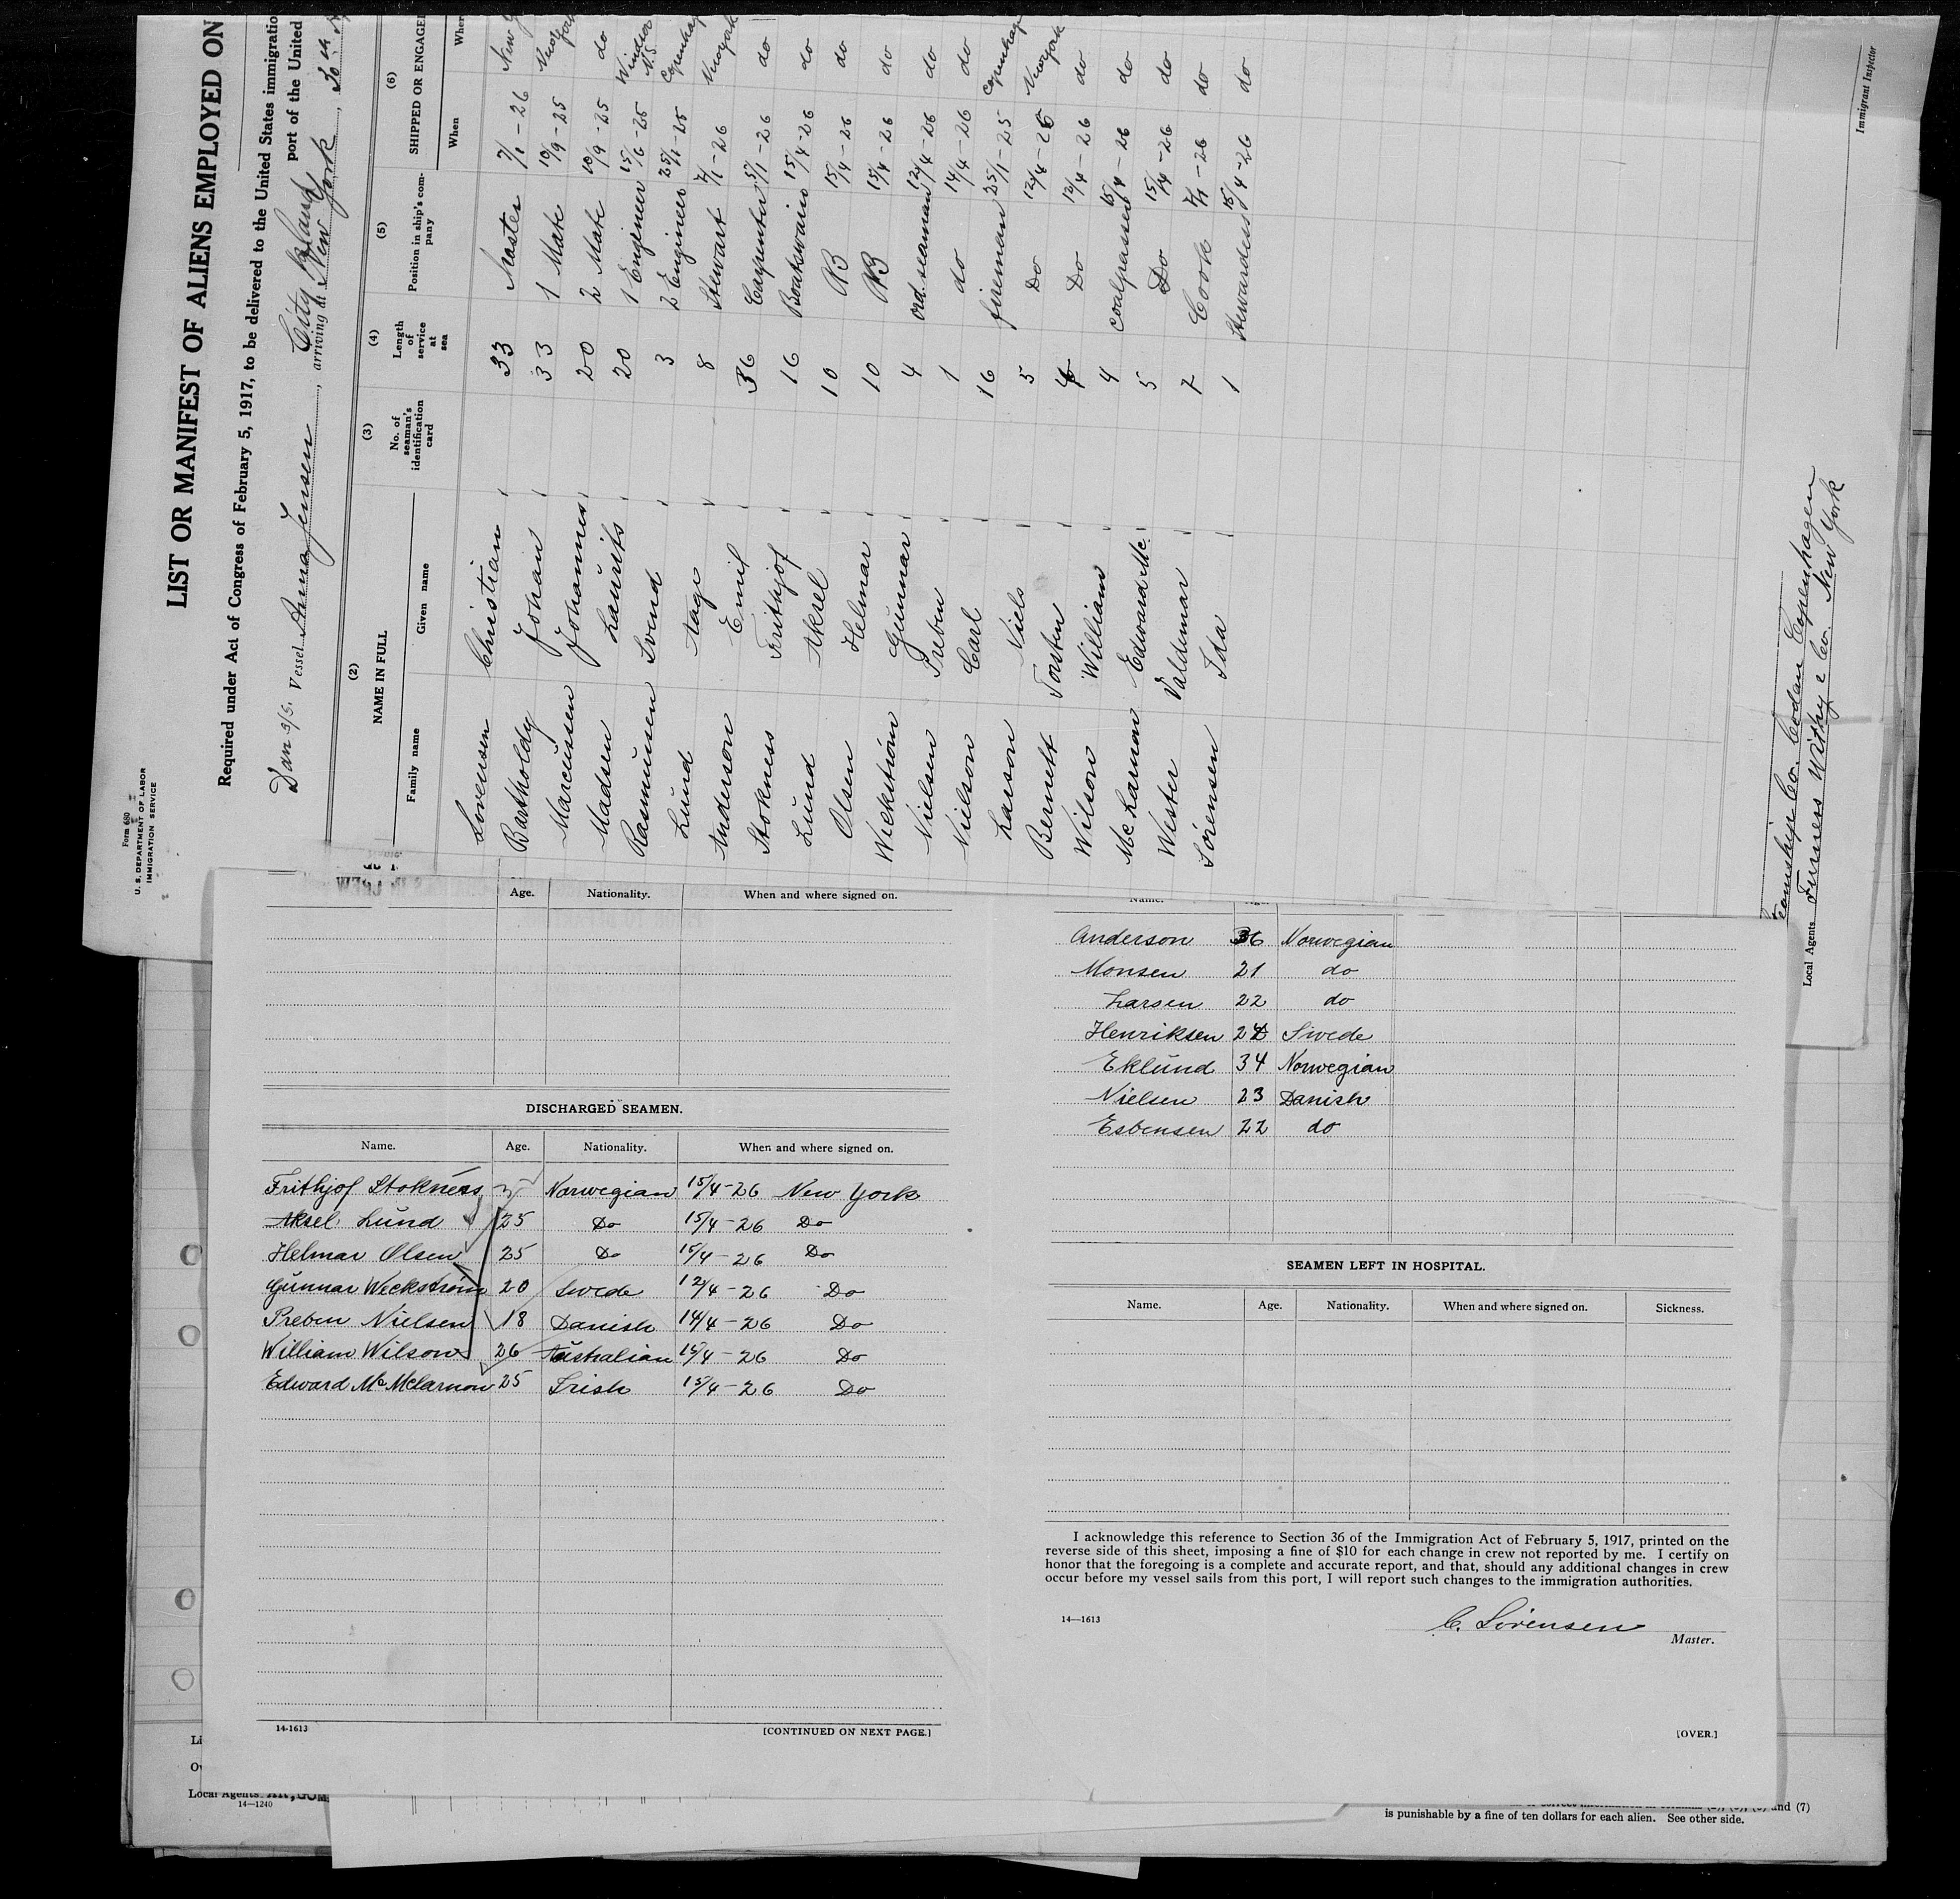 Form 680
U. S. DEPARTMENT OF LABOR
IMMIGRATION SERVICE
LIST OR MANIFEST OF ALIENS EMPLOYED ON
Required under Act of Congress of February 5, 1917, to be delivered to the United States immigratio
Dan s/s. Vessel Anna Jensen, arriving at New York, port of the United
City Island
(2) (3) (4) (5) (6)
NAME IN FULL No. of seaman's identification card Length of service at sea Position in ship's company SHIPPED OR ENGAGED
Family name Given name When Wher
Sorensen Christian 33 Master 7/1-26 New
Bartholdy Johan 33 1 Mate 10/9-25 New York
Marcussen Johannes 20 2 Mate 10/9-25 do
Madsen Laurits 20 1 Engineer 15/6-25 Windsor N.S.
Rasmussen Svend 3 2 Engineer 25/1-25 Copenhag
Lund Aage 8 Stewart 7/1-26 New york
Anderson Emil 36 Carpenter 5/1-26 do
Stokness Frithjof 16 Boatswain 15/4-26 do
Lund Aksel 10 AB 15/4-26 do
Olsen Helmar 10 AB 15/4-26 do
Wickström Gunnar 4 ord. seaman 12/4-26 do
Nielsen Preben 1 do 14/4-26 do
Nielson Carl 16 fireman 25/1-25 Copenhag
Larson Niels 5 Do New york
Bernett Torsten Do 12/4-26 do
Wilson William 4 Coalpasser 15/4-26 do
McLarnon Edward Mc. 5 Do 15/4-26 do
Wester Valdemar 7 Cook 7/1-26 do
Sørensen Ida 1 Stewardess 15/4-26 do
Steamship Co. Codan Copenhagen
Local Agents Furness Withy & Co. New York
Immigrant Inspector
Age. Nationality. When and where signed on.
DISCHARGED SEAMEN.
Name. Age. Nationality. When and where signed on.
Frithjof Stokness Norwegian 15/4-26 New York
Aksel Lund 25 Do 15/4-26 Do
Helmar Olsen 25 Do 15/4-26 Do
Gunnar Weckström 20 Swede 12/4-26 Do
Preben Nielsen 18 Danish 14/4-26 Do
William Wilson 26 Australian 15/4-26 Do
Edward Mc Mclarnon 25 Irish 15/4-26 Do
14-1613 [CONTINUED ON NEXT PAGE.]
Name.
Anderson 36 Norwegian
Monsen 21 do
Larsen 22 do
Henriksen 24 Swede
Eklund 34 Norwegian
Nielsen 23 Danish
Esbensen 22 do
SEAMEN LEFT IN HOSPITAL.
Name. Age. Nationality. When and where signed on. Sickness.
I acknowledge this reference to Section 36 of the Immigration Act of February 5, 1917, printed on the
reverse side of this sheet, imposing a fine of $10 for each change in crew not reported by me. I certify on
honor that the foregoing is a complete and accurate report, and that, should any additional changes in crew
occur before my vessel sails from this port, I will report such changes to the immigration authorities.
14—1613
C. Sörensen
Master.
[OVER.]
Local Agents
14—1240
and (7)
is punishable by a fine of ten dollars for each alien. See other side.